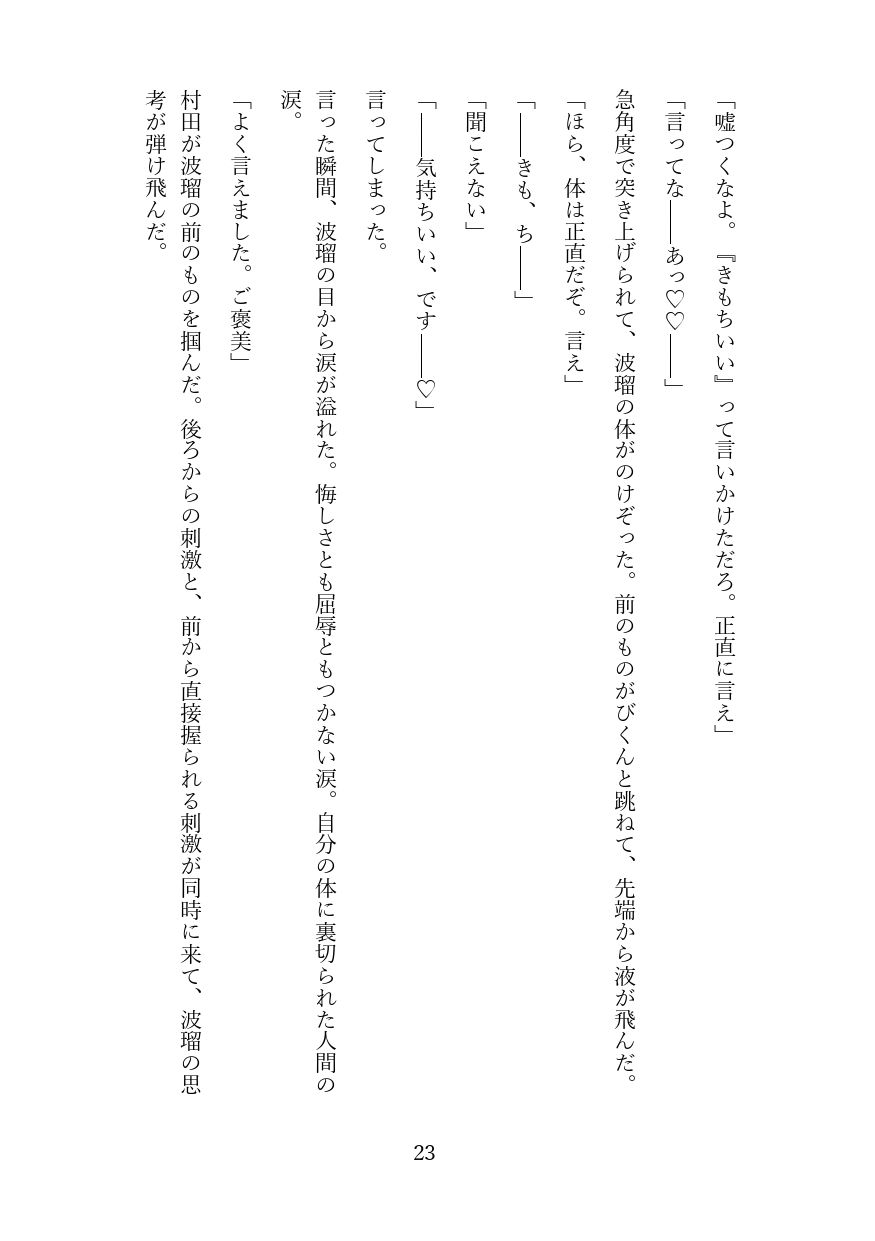 「嘘つくなよ。『きもちいい』って言いかけただろ。正直に言え」
「言ってな――あっ♡♡――」
急角度で突き上げられて、波瑠の体がのけぞった。前のものがびくんと跳ねて、先端から液が飛んだ。
「ほら、体は正直だぞ。言え」
「――きも、ち――」
「聞こえない」
「――気持ちいい、です――♡」
言ってしまった。
言った瞬間、波瑠の目から涙が溢れた。悔しさとも屈辱ともつかない涙。自分の体に裏切られた人間の
涙。
「よく言えました。ご褒美」
村田が波瑠の前のものを掴んだ。後ろからの刺激と、前から直接握られる刺激が同時に来て、波瑠の思
考が弾け飛んだ。
23